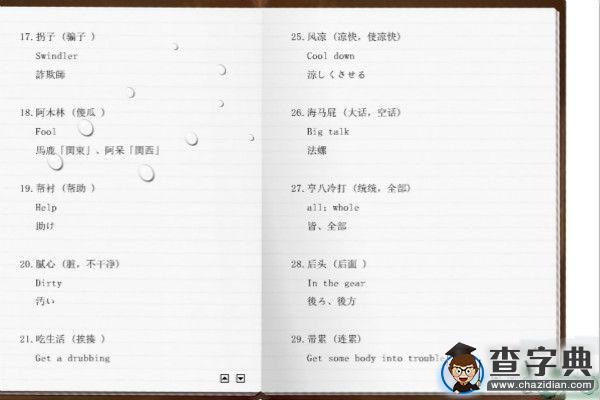 17.拐子（骗子 ）
Swindler
詐欺師
18.阿木林（傻瓜 ）
Fool
馬鹿「関東」、阿呆「関西」
19.帮村（帮助 ）
Help
助け
20.腻心（脏，不干净）
Dirty
汚い
21.吃生活（挨揍 ）
Get a drubbing
25.风凉（凉快，使凉快）
Cool down
涼しくさせる
26.海马屁（大话，空话）
Big talk
法螺
27.亨八冷打（统统，全部）
all; whole
皆、全部
28.后头（后面 ）
In the gear
後ろ、後方
29.带累（连累）
Get some body into trouble
查字典
www.chazidian.com